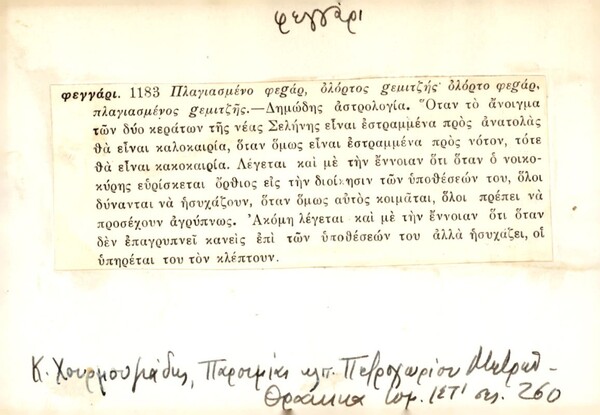 φεγγάρι
φεγγάρι. 1183 Πλαγιασμένο φεgάρ, ὀλόρτος gεμιτζής· ὀλόρτο φεgάρ,
πλαγιασμένος gεμιτζῆς.—Δημώδης ἀστρολογία. Ὅταν τὸ ἄνοιγμα
τῶν δύο κεράτων τῆς νέας Σελήνης εἶναι ἐστραμμένα πρὸς ἀνατολὰς
θὰ εἶναι καλοκαιρία, ὅταν ὅμως εἶναι ἐστραμμένα πρὸς νότον, τότε
θὰ εἶναι κακοκαιρία. Λέγεται καὶ μὲ τὴν ἔννοιαν ὅτι ὅταν ὁ νοικο-
κύρης εὑρίσκεται ὄρθιος εἰς τὴν διοίκησιν τῶν ὑποθέσεών του, ὅλοι
δύνανται νὰ ἡσυχάζουν, ὅταν ὅμως αὐτὸς κοιμᾶται, ὅλοι πρέπει νὰ
προσέχουν ἀγρύπνως. Ἀκόμη λέγεται καὶ μὲ τὴν ἔννοιαν ὅτι ὅταν
δὲν ἐπαγρυπνεῖ κανεὶς ἐπὶ τῶν ὑποθέσεών του ἀλλὰ ἡσυχάζει, οἱ
ὑπηρέται του τὸν κλέπτουν.
Κ. Χουρμουζιάδης, Παροιμίαι κλπ. Πετροχωρίου Μετρῶν -
Θρακικά τομ. ΙΣΤ΄ σελ. 260